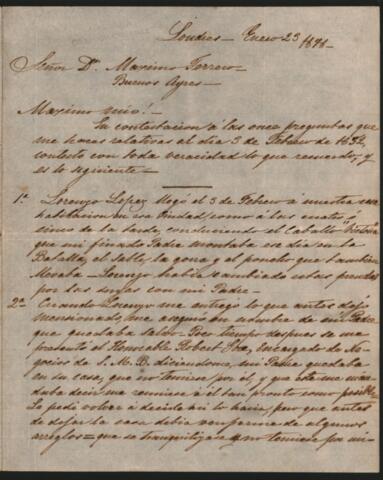 Londres - Enero 23 1898 -
Señor Dn. Maximo Terrero -
Buenos Ayres -
Maximo mio! -
En contestacion á las once preguntas que
me haces relativas al dia 3 de Febrero de 1852,
contesto con toda veracidad lo que recuerdo, y
es lo siguiente -
1ª Lorenzo Lopez llegó el 3 de Febrero á nuestra
habitacion en esa Ciudad, como á las cuatro ó
cinco de la tarde, conduciendo el Caballo
que mi finado Padre montaba ese dia en la
Batalla, el sable, la gorra y el poncho que tambien
llevaba - Lorenzo habia cambiado estas prendas
por las suyas con mi Padre -
2ª Cuando Lorenzo me entregó lo que antes dejo
mencionado, me aseguró en nombre de mi Padre
que quedaba salvo - Poco tiempo despues se me
presentó el Honorable Robert Gore, Encargado de Ne-
gocios de S. M. B. diciendome, mi Padre quedaba
en su casa, que no temiese por él, y que me man-
daba decir me reuniese á él tan pronto como posible
Le pedí volver á decirle asi lo haria, pero que antes
de dejar la casa debia ocuparme de algunos
arreglos = que se tranquilizase y no temiese por mi -